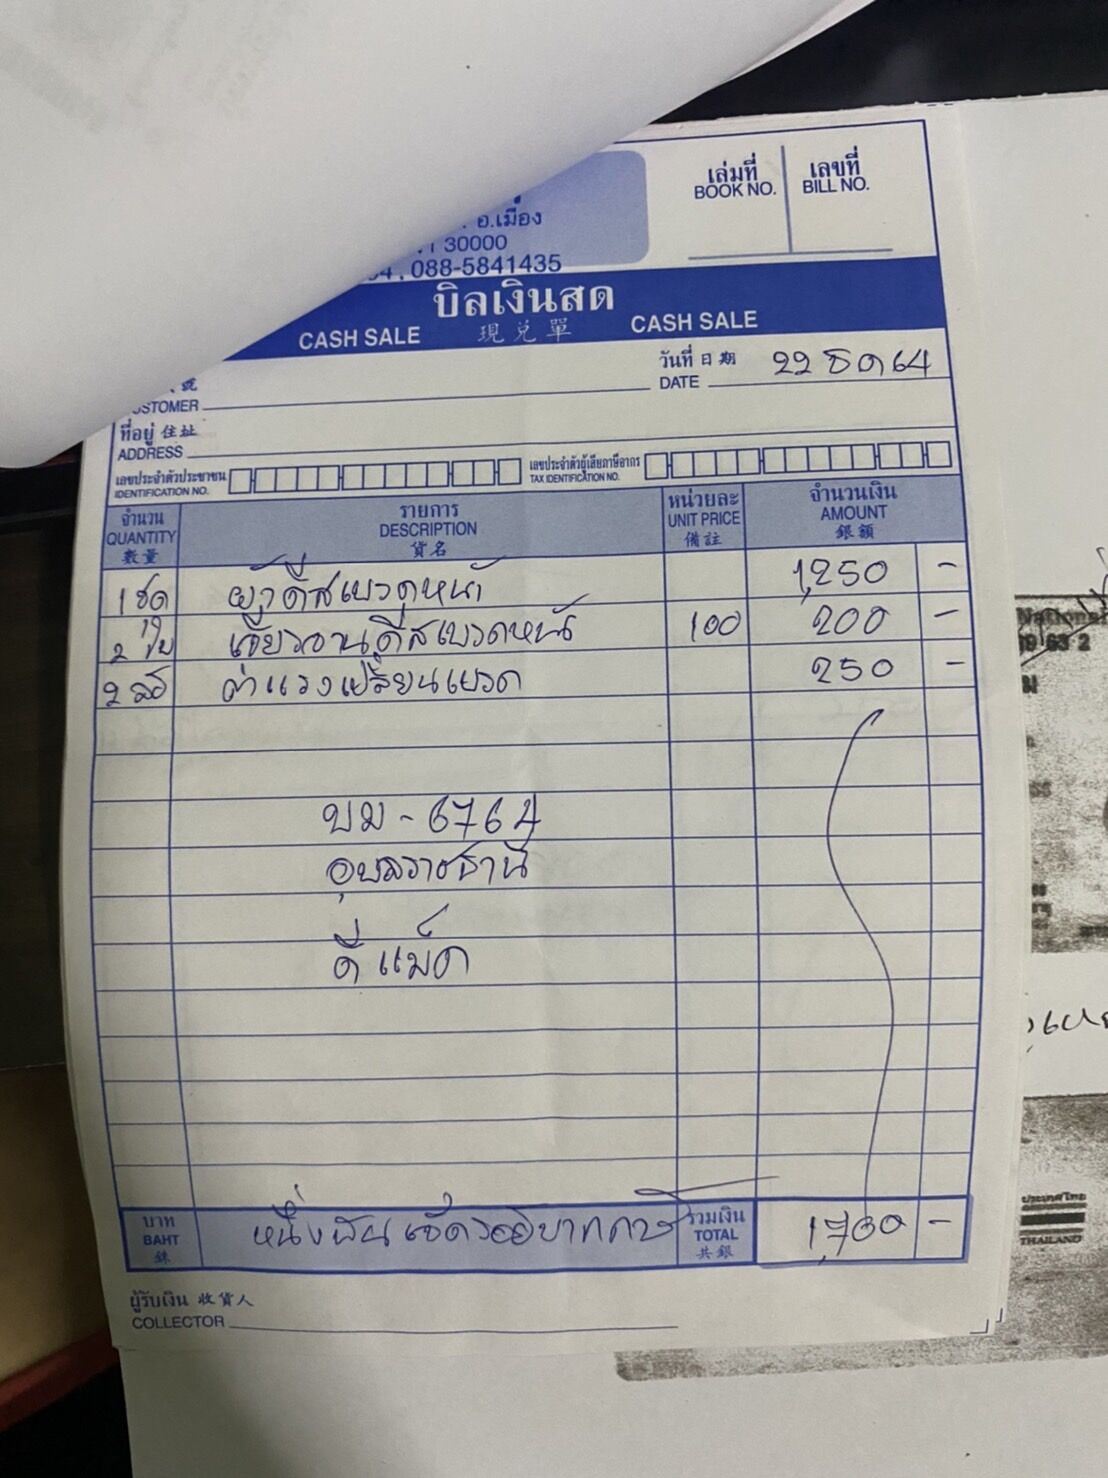 เล่มที่
BOOK NO.
เลขที่
BILL NO.
อ.เมือง
30000
088-5841435
บิลเงินสด
CASH SALE 現兑單 CASH SALE
วันที่ 日期 22 ธค 64
DATE
CUSTOMER
ที่อยู่ 住址
ADDRESS
เลขประจำตัวประชาชน
IDENTIFICATION NO.
เลขประจำตัวผู้เสียภาษีอากร
TAX IDENTIFICATION NO.
จำนวน รายการ หน่วยละ จำนวนเงิน
QUANTITY DESCRIPTION UNIT PRICE AMOUNT
數量 貨名 備註 銀額
1 ชุด ผ้าดีสเบรดหน้า 1,250 -
2 ใบ เจียรจานดีสเบรดหน้า 100 200 -
2 ล้อ ค่าแรงเปลี่ยนเบรด 250 -
บม - 6764
อุบลราชธานี
ดีแม็ค
บาท หนึ่งพันเจ็ดร้อยบาท รวมเงิน 1,700 -
BAHT TOTAL
銖 共銀
ผู้รับเงิน 收貨人
COLLECTOR
National
ประเทศไทย
THAILAND